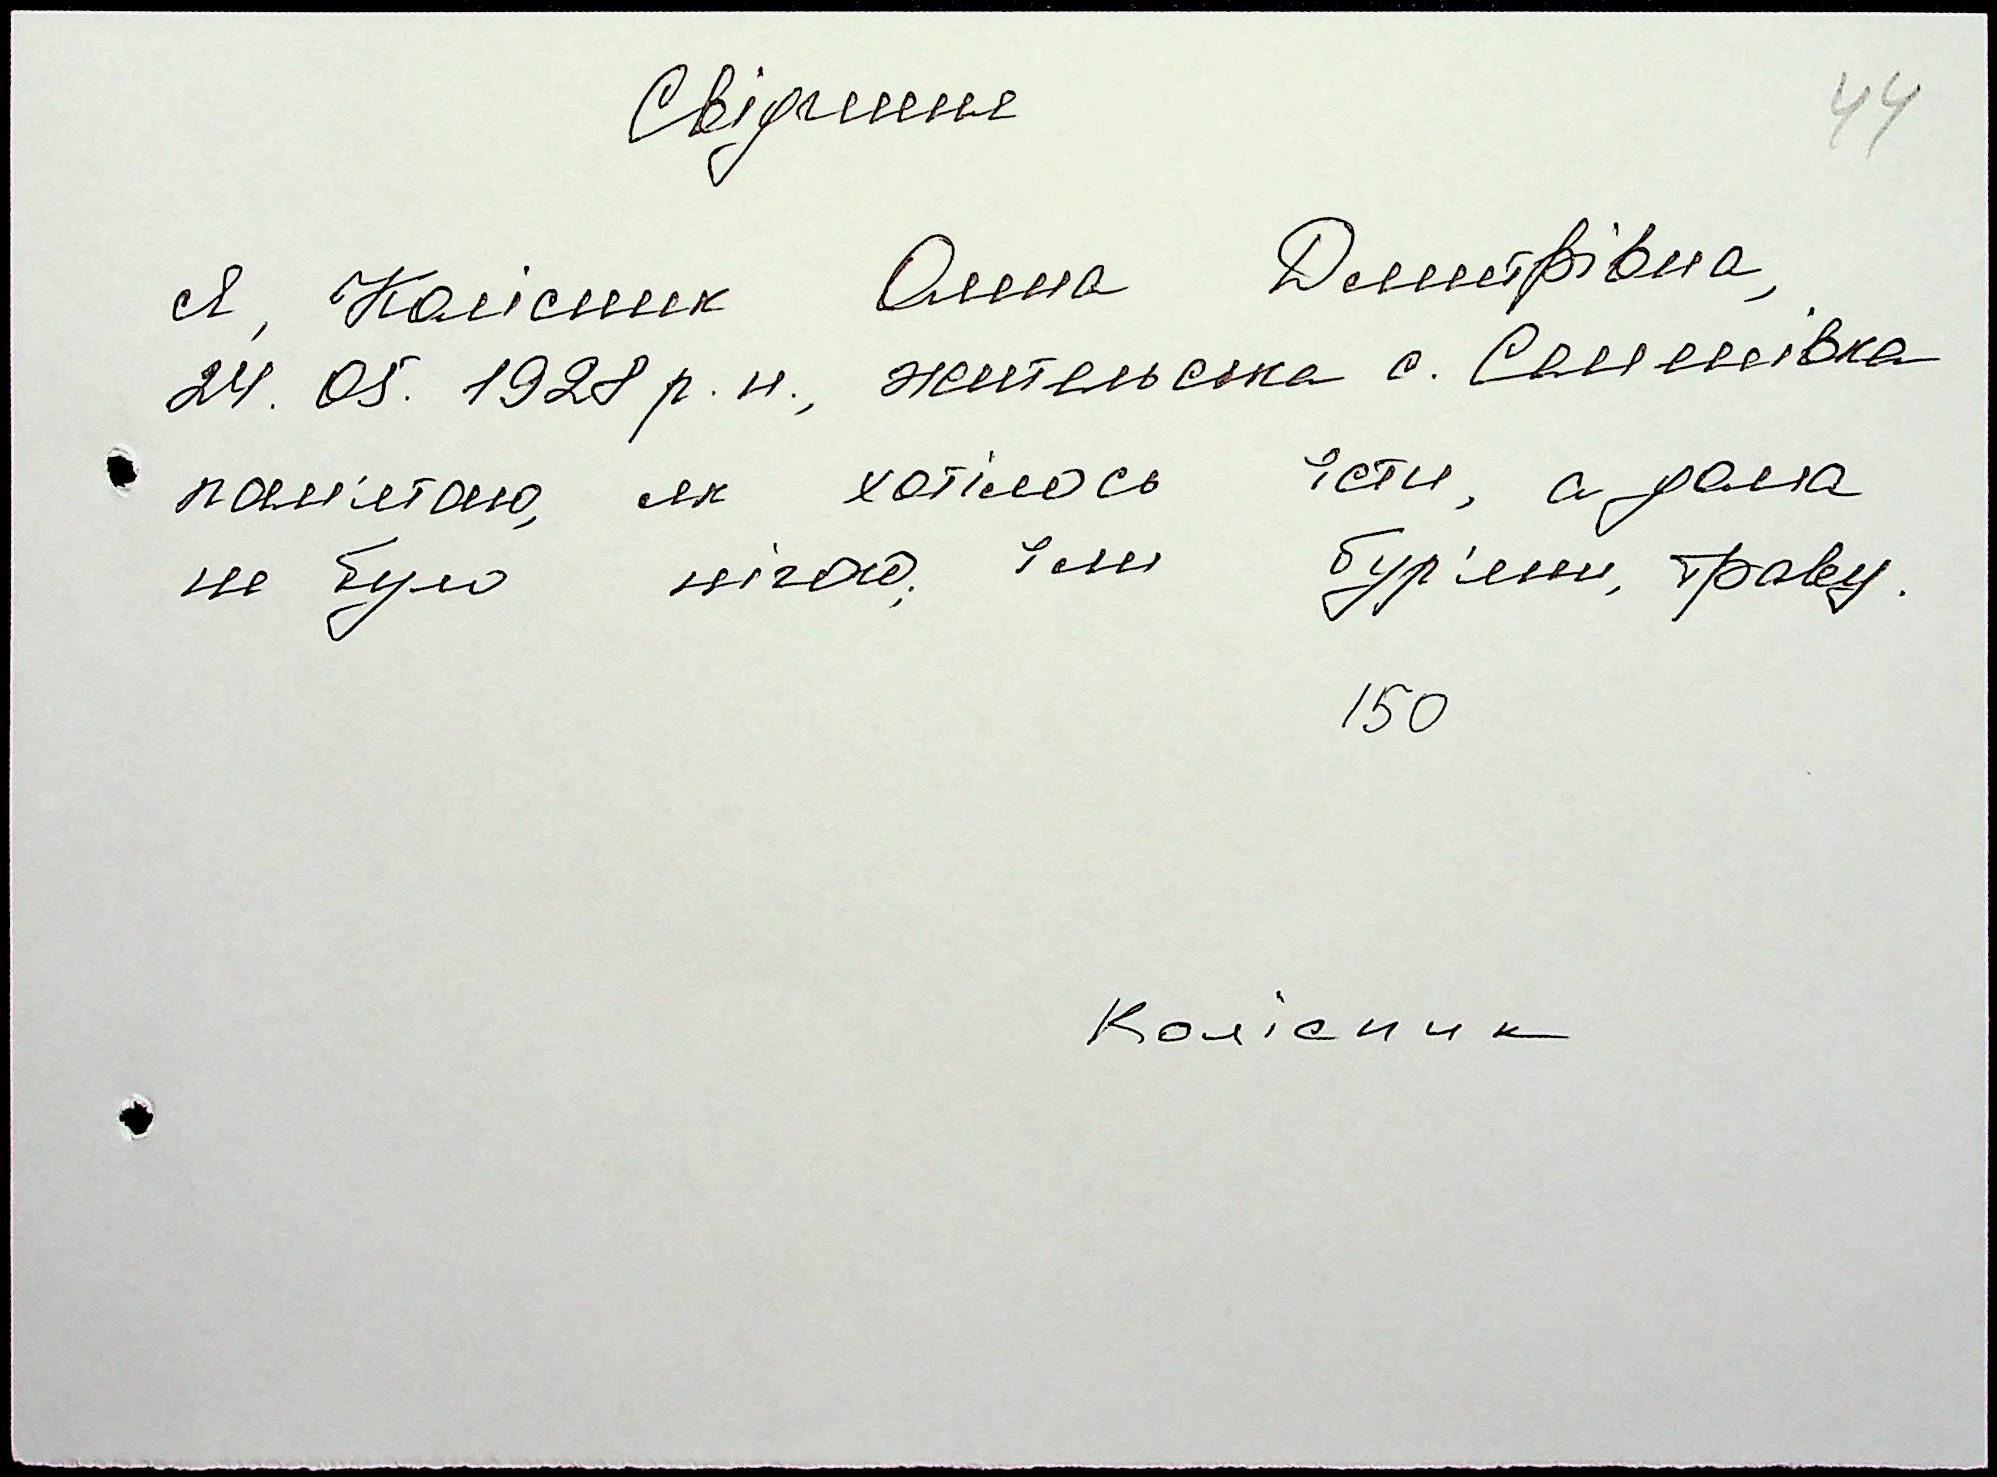 Свідчення
44
Я, Колісник Олена Дмитрівна,
24. 05. 1928 р. н., жителька с.
пам'ятаю, як хотілось їсти, а дома
не було нічого, їли бур'яни, траву.
150
Колісник